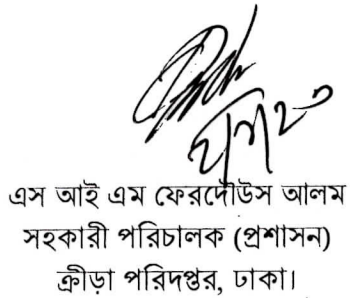 এস আই এম ফেরদৌউস আলম
সহকারী পরিচালক (প্রশাসন)
ক্রীড়া পরিদপ্তর, ঢাকা।